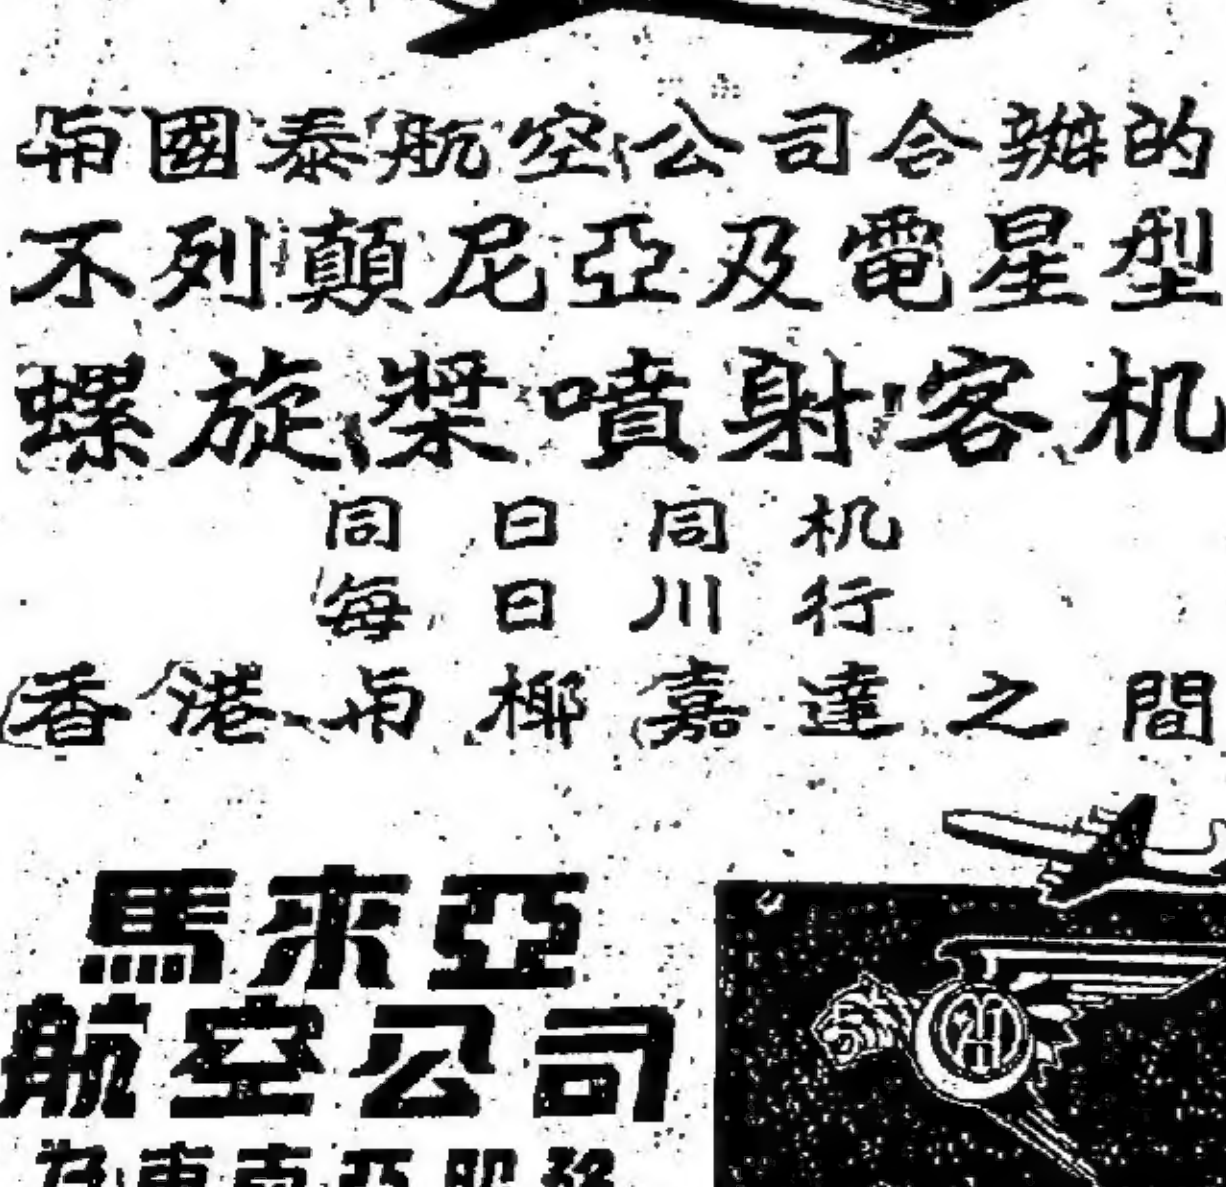 与國泰航空公司合辦的
不列顛尼亞及電星型
螺旋槳噴射客机
同日同机
每日川行
香港与椰嘉達之間
馬來亞
航空公司
為東南亞服務